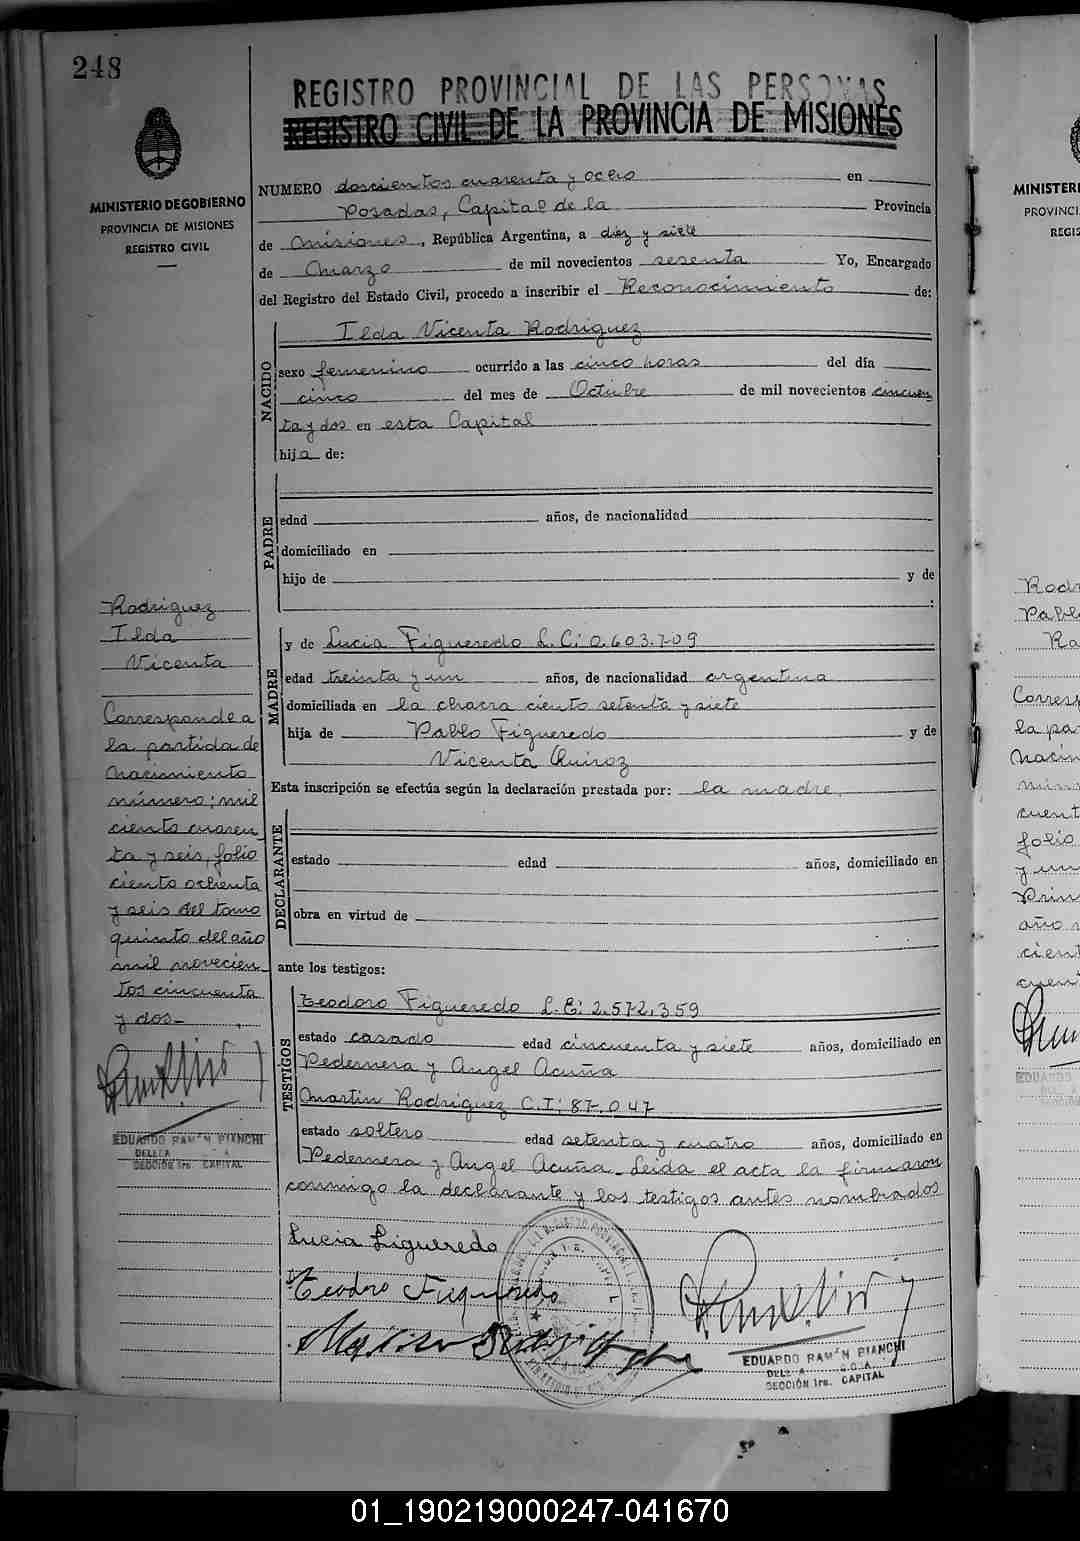 248
REGISTRO PROVINCIAL DE LAS PERSONAS
REGISTRO CIVIL DE LA PROVINCIA DE MISIONES
MINISTERIO DE GOBIERNO
PROVINCIA DE MISIONES
REGISTRO CIVIL
NUMERO doscientos cuarenta y ocho en
Posadas, Capital de la Provincia
de Misiones, República Argentina, a diez y siete
de Marzo de mil novecientos sesenta Yo, Encargado
del Registro del Estado Civil, procedo a inscribir el Reconocimiento de:
NACIDO
Ilda Vicenta Rodriguez
sexo femenino ocurrido a las cinco horas del día
cinco del mes de Octubre de mil novecientos cincuen
ta y dos en esta Capital
hija de:
PADRE
edad años, de nacionalidad
domiciliado en
hijo de y de
:
MADRE
y de Lucia Figueredo L.C: 0.603.709
edad treinta y un años, de nacionalidad argentina
domiciliada en la chacra ciento setenta y siete
hija de Pablo Figueredo y de
Vicenta Quiroz
Esta inscripción se efectúa según la declaración prestada por: la madre,
DECLARANTE
estado edad años, domiciliado en
obra en virtud de
ante los testigos:
TESTIGOS
Teodoro Figueredo L.E: 2.572.359
estado casado edad cincuenta y siete años, domiciliado en
Pedernera y Angel Acuña
Martin Rodriguez C.I: 87.047
estado soltero edad setenta y cuatro años, domiciliado en
Pedernera y Angel Acuña_Leida el acta la firmaron
conmigo la declarante y los testigos antes nombrados
Lucia Figueredo
Teodoro Figueredo
EDUARDO RAMÓN BIANCHI
SECCIÓN 1ra. CAPITAL
Rodriguez
Ilda
Vicenta
Corresponde a
la partida de
nacimiento
número; mil
ciento cuaren
ta y seis, folio
ciento ochenta
y seis del tomo
quinto del año
mil novecien
tos cincuenta
y dos_
EDUARDO RAMÓN BIANCHI
SECCIÓN 1ra. CAPITAL
MINISTERI
PROVINCI
REGIS
Pablo
la pa
folio
01_190219000247-041670